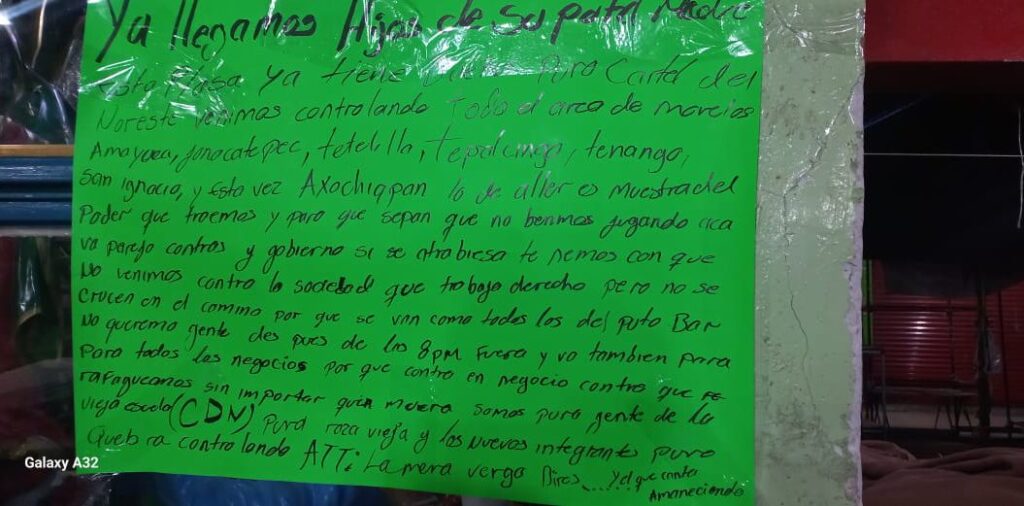 Ya llegamos Hijos de su puta Madre
Esta Plasa ya tiene Puro Cartel del
Noreste venimos controlando Todo el area de morelos
Amayuca, jonacatepec, tetelilla, Tepalcingo, tenango,
San ignacio, y esta vez Axochiapan lo de aller es muestra del
Poder que traemos y para que sepan que no benimos jugando aca
va parejo contras y gobierno si se atrabiesa te nemos con que
No venimos contra la sociedad que trabaja derecho pero no se
crucen en el camino por que se van como todos los del puto Bar
No queremo gente des pues de las 8pm Fuera y va tambien para
Para todos los negocios por que contra en negocio contra que re
rafagueamos sin importar quien muera Somos pura gente de la
vieja escuela (CDN) Pura raza vieja y los nuevos integrantes puro
Quebra controlando ATT: La mera verga
Y el que canta
Amaneciendo
Galaxy A32